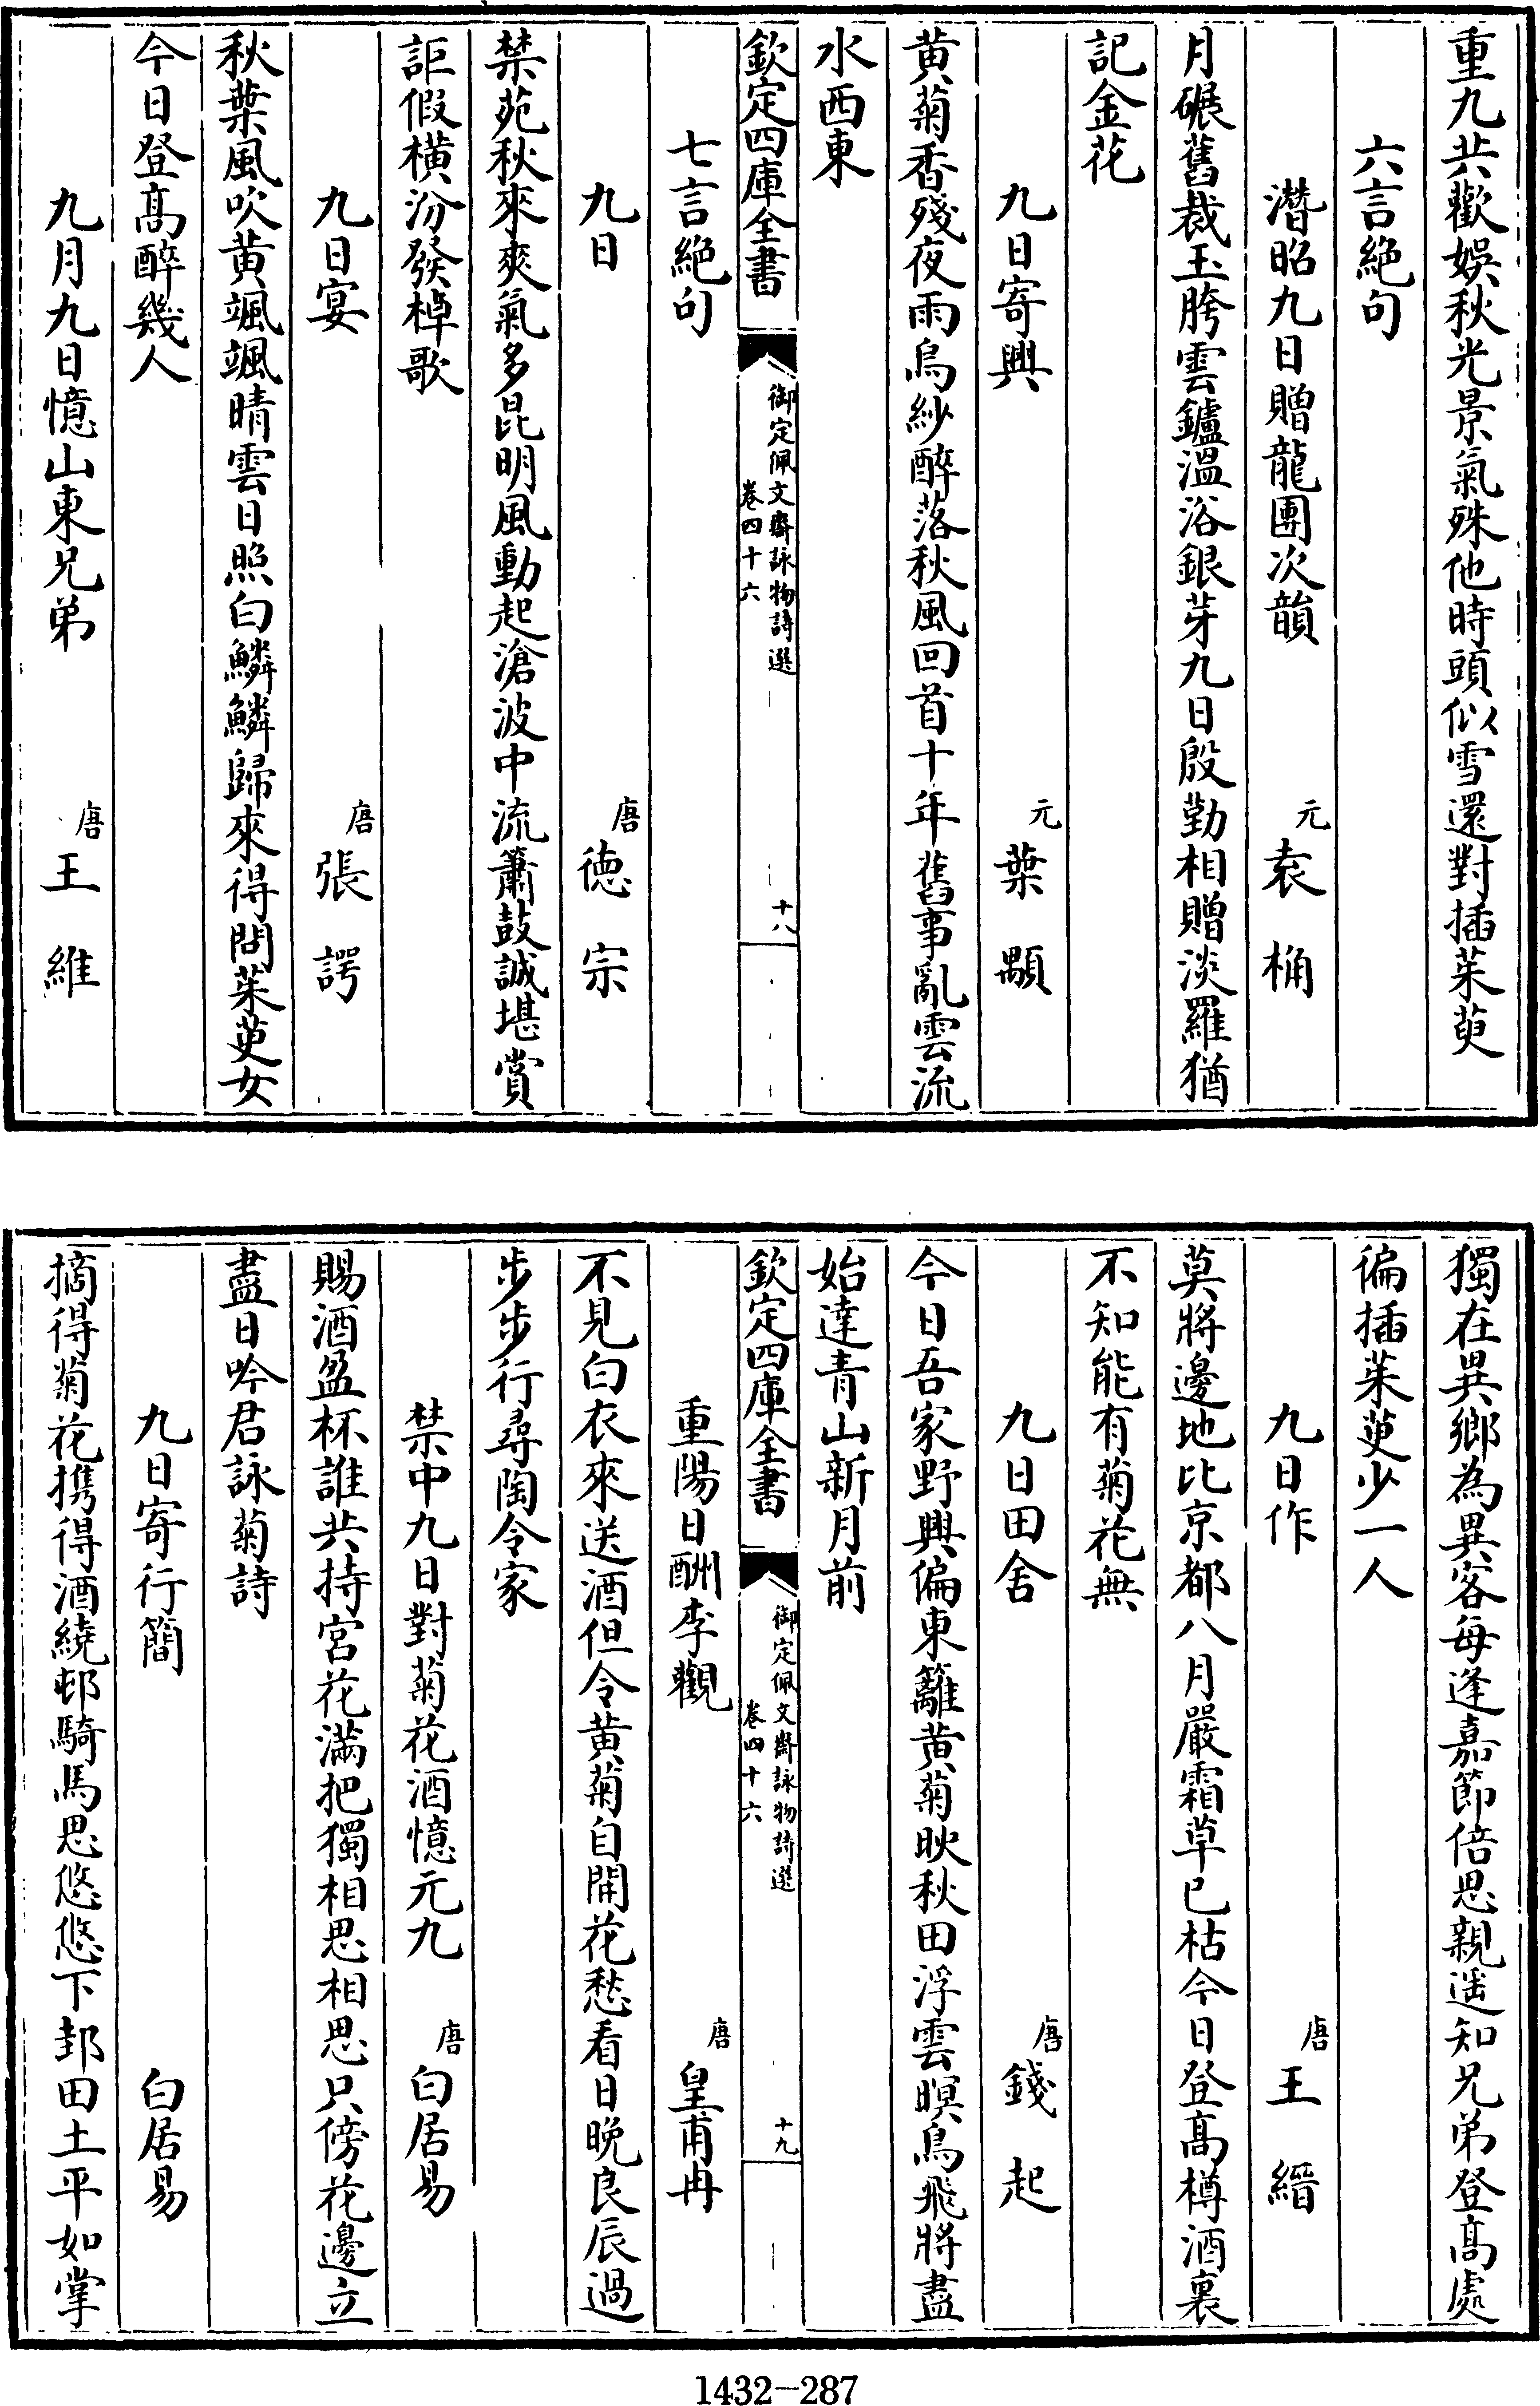 重九共歡娛秋光景氣殊他時頭似雪還對插茱萸
六言絕句
潛昭九日贈龍團次韻 元 袁桷
月碾舊裁玉胯雲鑪溫浴銀芽九日殷勤相贈淡羅猶
記金花
九日寄興 元 葉顒
黃菊香殘夜雨烏紗醉落秋風回首十年舊事亂雲流
水西東
欽定四庫全書 御定佩文齋詠物詩選 卷四十六 十八
七言絕句
九日 唐 德宗
禁苑秋來爽氣多昆明風動起滄波中流簫鼓誠堪賞
詎假橫汾發棹歌
九日宴 唐 張諤
秋葉風吹黃颯颯晴雲日照白鱗鱗歸來得問茱萸女
今日登髙醉幾人
九月九日憶山東兄弟 唐 王維
獨在異鄉為異客每逢嘉節倍思親遥知兄弟登髙處
徧插茱萸少一人
九日作 唐 王縉
莫將邊地比京都八月嚴霜草已枯今日登髙樽酒裏
不知能有菊花無
九日田舍 唐 錢起
今日吾家野興偏東籬黃菊映秋田浮雲暝鳥飛將盡
始達青山新月前
欽定四庫全書 御定佩文齋詠物詩選 卷四十六 十九
重陽日酬李觀 唐 皇甫冉
不見白衣來送酒但令黃菊自開花愁看日晚良辰過
步步行尋陶令家
禁中九日對菊花酒憶元九 唐 白居易
賜酒盈杯誰共持宮花滿把獨相思相思只傍花邊立
盡日吟君詠菊詩
九日寄行簡 白居易
摘得菊花携得酒繞邨騎馬思悠悠下邽田土平如掌
1432-287